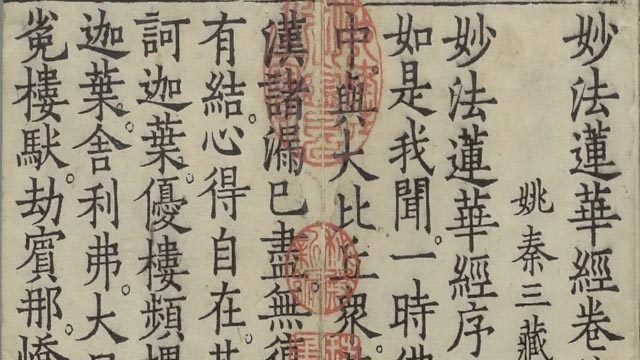 妙法蓮華經卷
姚秦三藏
妙法蓮華經序
如是我聞。一時佛
中。與大比丘衆
漢諸漏已盡。無復
有結。心得自在。其
訶迦葉。優樓頻螺
迦葉。舍利弗。大目
㝹樓馱。劫賓那。憍